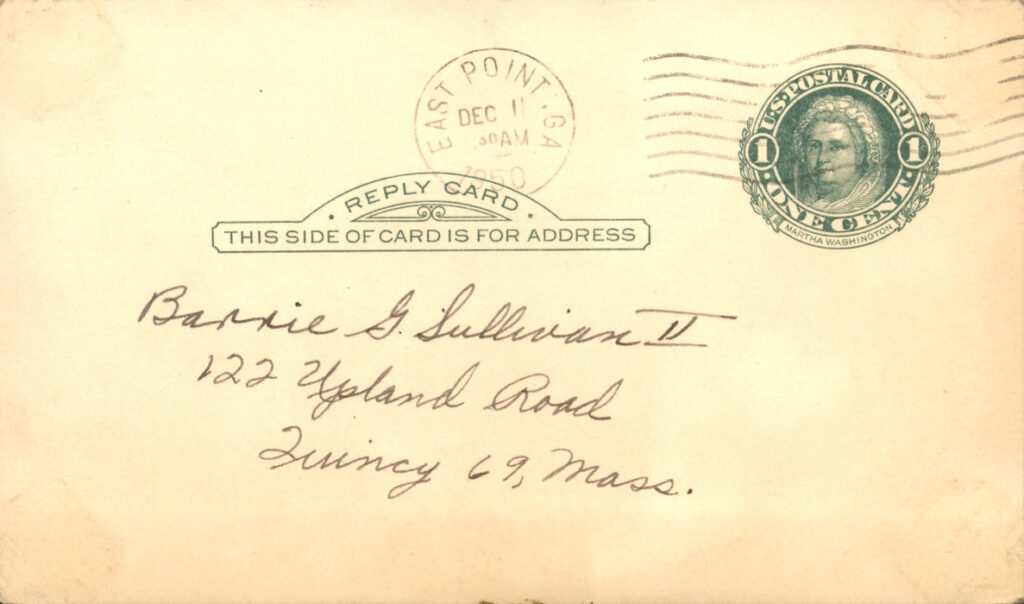 EAST POINT, GA
DEC 11
30 AM
1950
U.S. POSTAL CARD
1 1
ONE CENT
MARTHA WASHINGTON
REPLY CARD
THIS SIDE OF CARD IS FOR ADDRESS
Barrie G. Sullivan II
122 Upland Road
Quincy 69, Mass.